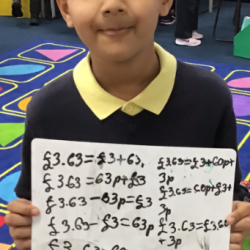 £3.63=£3+63p
£3.63=63p+£3
£3.63-63p=£3
£3.63-£3=63p
£3.63=£3+60p+
3p
£3.63=60p+£3+
3p
£3.63=£3.60
+3p